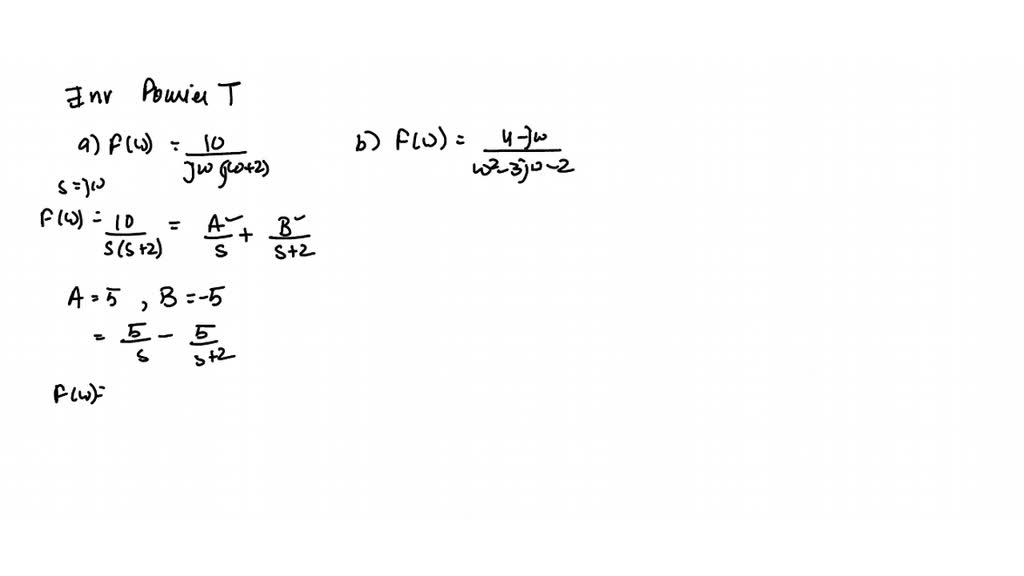 Inv Fourier T
a) F(ω) = 10 / jω(jω+2)
b) F(ω) = 4-jω / ω²-3jω-2
s=jω
F(ω) = 10 / s(s+2) = A / s + B / s+2
A = 5 , B = -5
= 5 / s - 5 / s+2
F(ω)=